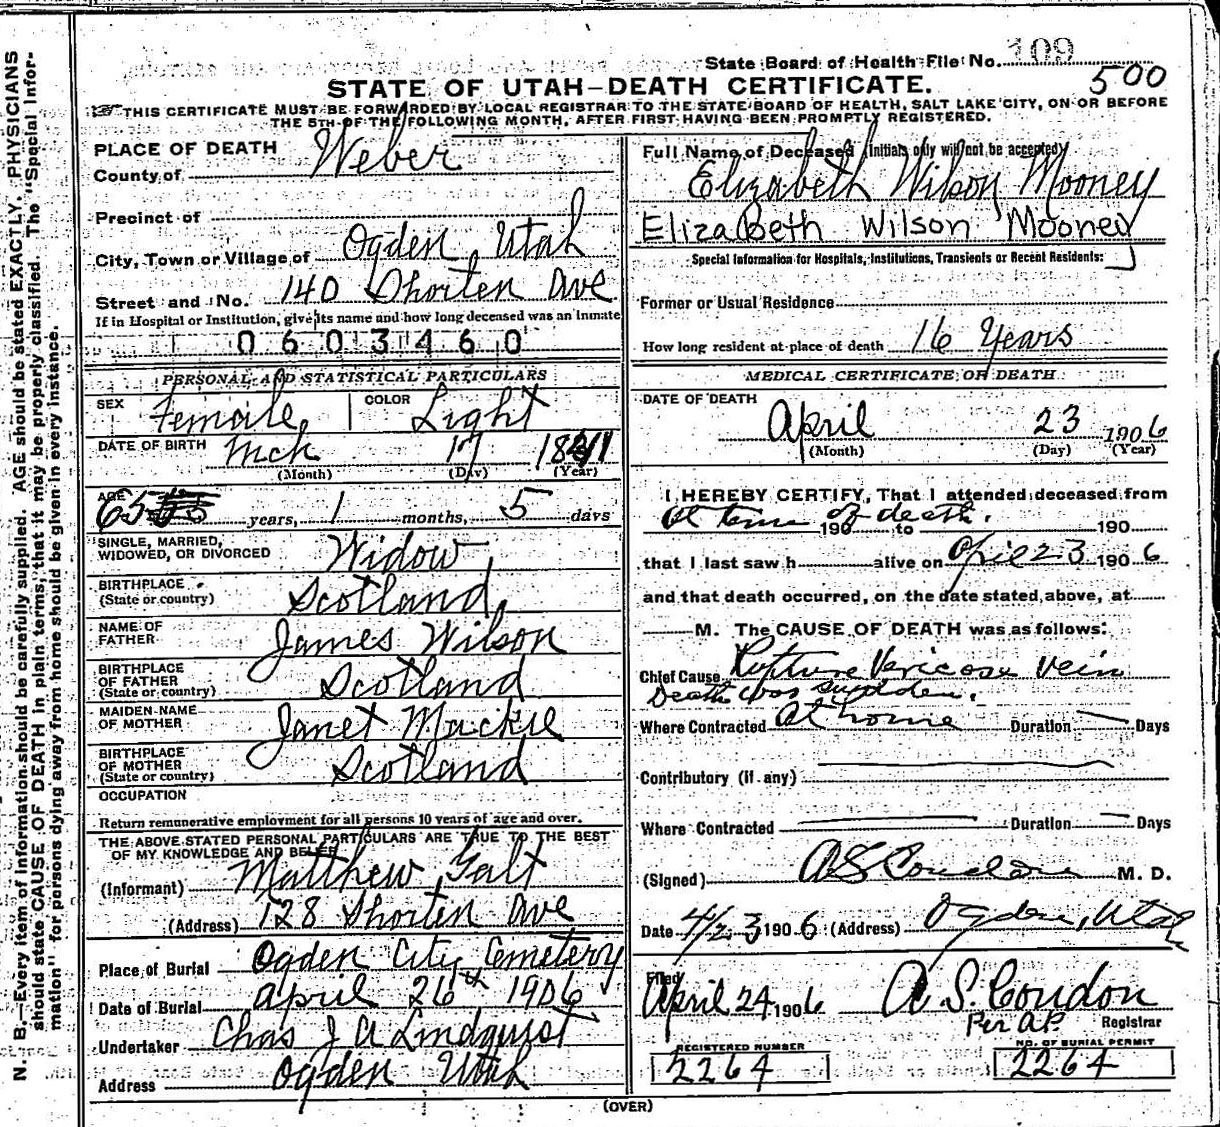 State Board of Health File No. 109
500
STATE OF UTAH—DEATH CERTIFICATE.
THIS CERTIFICATE MUST BE FORWARDED BY LOCAL REGISTRAR TO THE STATE BOARD OF HEALTH, SALT LAKE CITY, ON OR BEFORE
THE 5TH OF THE FOLLOWING MONTH, AFTER FIRST HAVING BEEN PROMPTLY REGISTERED.
N. B.—Every item of information should be carefully supplied. AGE should be stated EXACTLY. PHYSICIANS
should state CAUSE OF DEATH in plain terms, that it may be properly classified. The "Special Infor-
mation" for persons dying away from home should be given in every instance.
PLACE OF DEATH
County of Weber
Precinct of
City, Town or Village of Ogden Utah
Street and No. 140 Shorten Ave
If in Hospital or Institution, give its name and how long deceased was an Inmate
0 6 0 3 4 6 0
PERSONAL AND STATISTICAL PARTICULARS
SEX Female COLOR Light
DATE OF BIRTH Mch 17 1841
(Month) (Day) (Year)
AGE 65 years, 1 months, 5 days
SINGLE, MARRIED,
WIDOWED, OR DIVORCED Widow
BIRTHPLACE
(State or country) Scotland
NAME OF
FATHER James Wilson
BIRTHPLACE
OF FATHER
(State or country) Scotland
MAIDEN NAME
OF MOTHER Janet Mackie
BIRTHPLACE
OF MOTHER
(State or country) Scotland
OCCUPATION
Return remunerative employment for all persons 10 years of age and over.
THE ABOVE STATED PERSONAL PARTICULARS ARE TRUE TO THE BEST
OF MY KNOWLEDGE AND BELIEF
(Informant) Matthew Galt
(Address) 128 Shorten Ave
Place of Burial Ogden City Cemetery
Date of Burial April 26th 1906
Undertaker Chas J A Lindquist
Address Ogden Utah
Full Name of Deceased (Initials only will not be accepted)
Elizabeth Wilson Mooney
ElizaBeth Wilson Mooney
Special Information for Hospitals, Institutions, Transients or Recent Residents:
Former or Usual Residence
How long resident at place of death 16 Years
MEDICAL CERTIFICATE OF DEATH
DATE OF DEATH
April 23 1906
(Month) (Day) (Year)
I HEREBY CERTIFY, That I attended deceased from
at time of death. 190 to 190
that I last saw h alive on April 23 1906
and that death occurred, on the date stated above, at
M. The CAUSE OF DEATH was as follows:
Chief Cause Rupture Varicose Vein
Death was sudden.
Where Contracted At home Duration — Days
Contributory (if any)
Where Contracted — Duration — Days
(Signed) A S Condon M. D.
Date 4/23 1906 (Address) Ogden, Utah
Filed
April 24 1906 A. S. Condon
Per A.P. Registrar
REGISTERED NUMBER
2264
NO. OF BURIAL PERMIT
2264
(OVER)